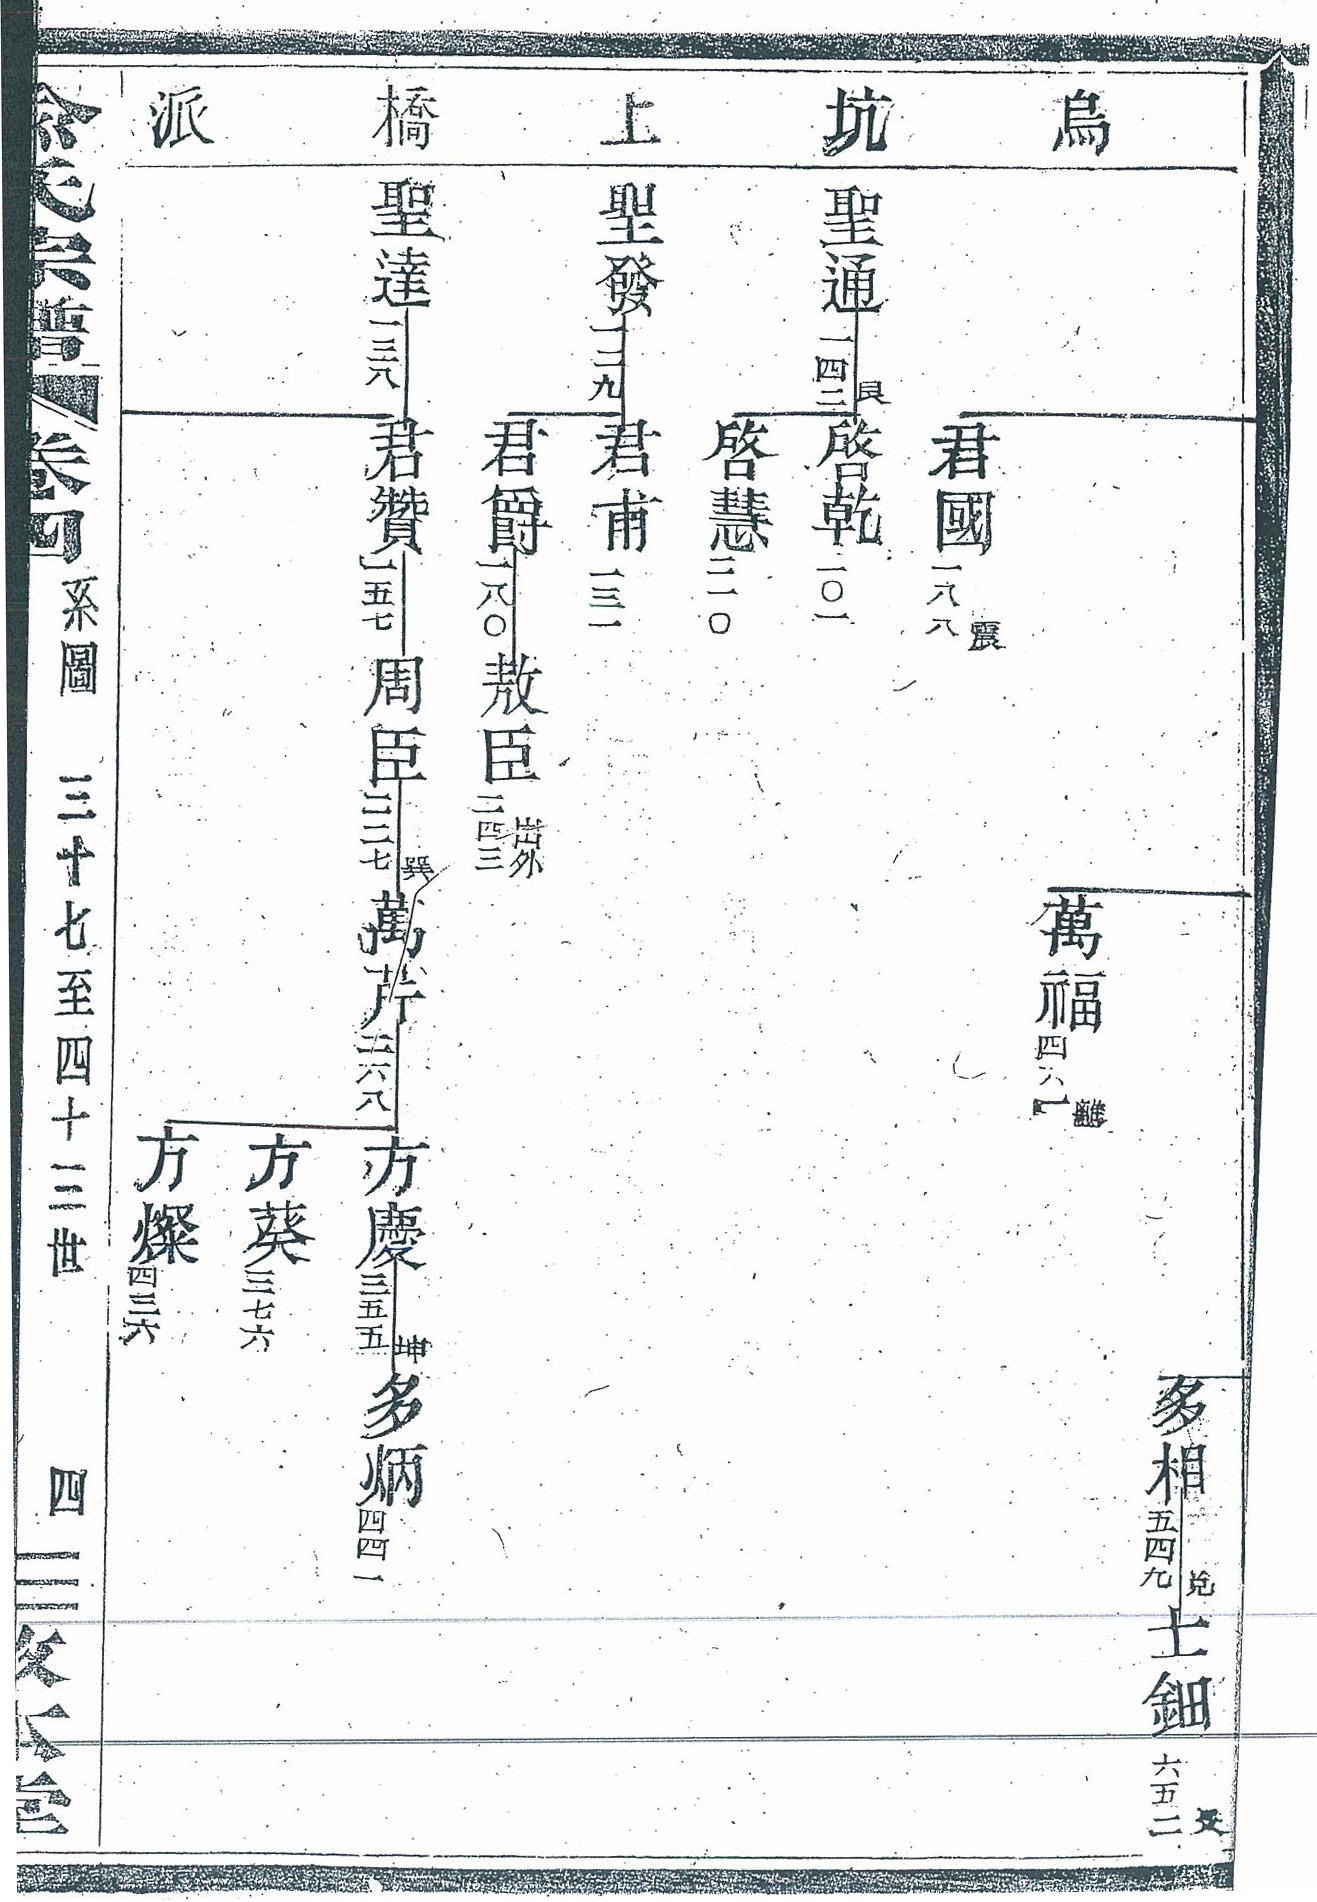 烏坑上橋派
君國 一八八 震
萬福 四六一 離
多相 五四九 兌
士鈿 六五二
聖通 一四二 艮
啓乾 一〇一
啓慧 二一〇
聖發 一二九
君甫 一三一
君爵 一八〇
敖臣 二四三 出外
聖達 一三八
君贊 一五七
周臣 二二七 巽
萬芹 二六八
方慶 三五五 坤
多炳 四四一
方葵 三七六
方燦 四三六
氏宗譜 卷四 系圖 三十七至四十三世 四